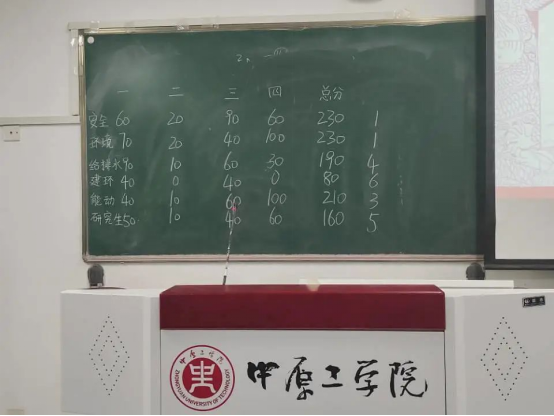 一 二 三 四 总分
安全 60 20 90 60 230 1
环境 70 20 40 100 230 1
给排水 90 10 60 30 190 4
建环 40 0 40 0 80 6
能动 40 10 60 100 210 3
研究生 50 10 40 60 160 5
中原工学院
ZHONGYUAN UNIVERSITY OF TECHNOLOGY
中原工学院